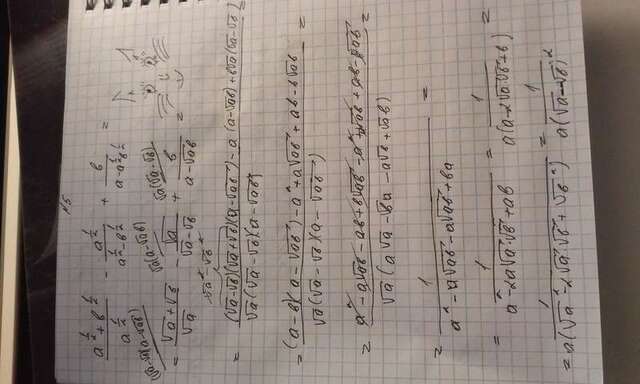 №5
(a^{1/2} + b^{1/2})/a^{1/2} - a^{1/2}/(a^{1/2} - b^{1/2}) + b/(a - a^{1/2}b^{1/2}) =
(√a-√b)(a-√ab) √a(a-√ab) √a(√a-√b)
= (√a + √b)/√a - √a/(√a - √b) + b/(a - √ab) =
√a² - √b²
= ((√a-√b)(√a+√b)(a-√ab) - a(a-√ab) + b√a(√a-√b))/(√a(√a-√b)(a-√ab)) =
= ((a-b)(a-√ab) - a² + a√ab + ab - b√ab)/(√a(√a-√b)(a-√ab)) =
= (a² - a√ab - ab + b√ab - a² + a√ab + ab - b√ab)/(√a(a√a - √ba - a√b + √ab)) =
= 1/(a² - a√ab - a√ab + ba) =
= 1/(a² - 2a√a·√b + ab) = 1/(a(a - 2√a·√b + b)) =
= 1/(a(√a² - 2√a·√b + √b²)) = 1/(a(√a-√b)²)